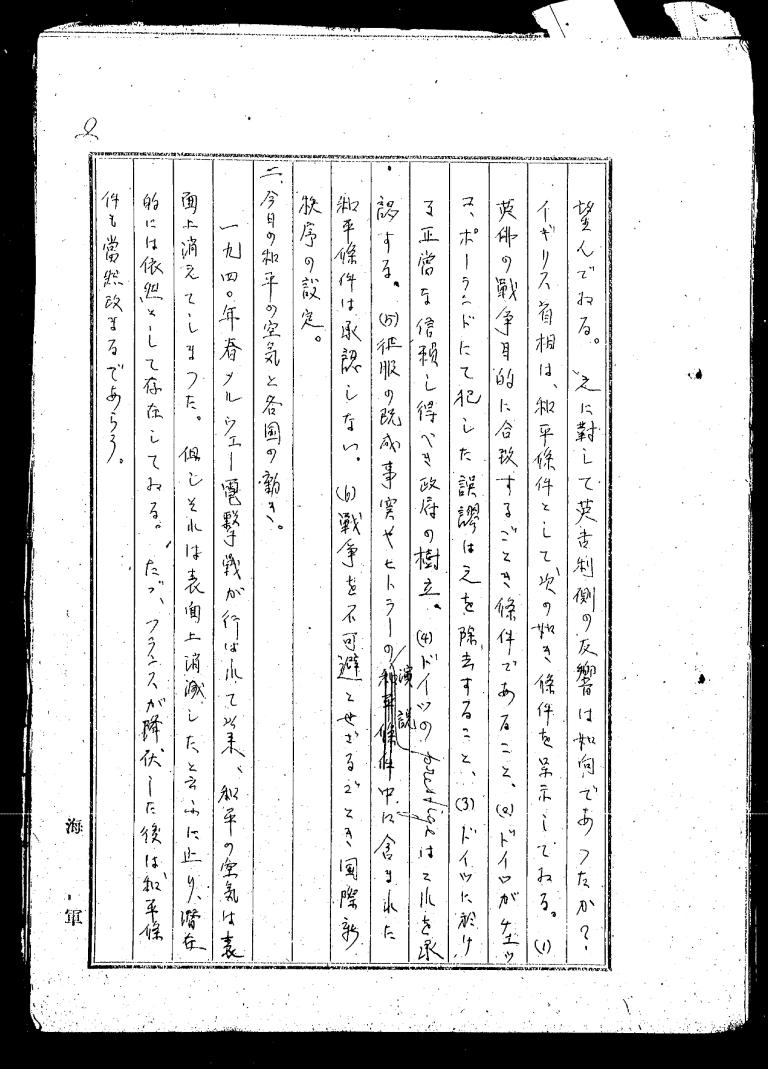 望んでゐる。之に對して英吉利側の反響は如何であつたか?
イギリス首相は、和平條件として、次の如き條件を呈示してゐる。(1)
英佛の戰争目的に合致するごとき條件であること、(2)ドイツがチェッ
コ、ポーランドにて犯した誤謬は之を除去すること、(3)ドイツに於け
る正常な信頼し得べき政府の樹立。(4)ドイツのprestigeはこれを承
認する。(5)征服の既成事実やヒトラーの演説中に含まれた
和平條件は承認しない。(6)戰争を不可避とせざるごとき国際新
秩序の設定。
二、今日の和平の空気と各国の動き。
一九四〇年春ノルウェー電擊戰が行はれて以来、和平の空気は表
面上消えてしまつた。但しそれは表面上消滅したと云ふに止り、潜在
的には依然として存在してゐる。たゞ、フランスが降伏した後は、和平條
件も當然改まるであらう。
海軍